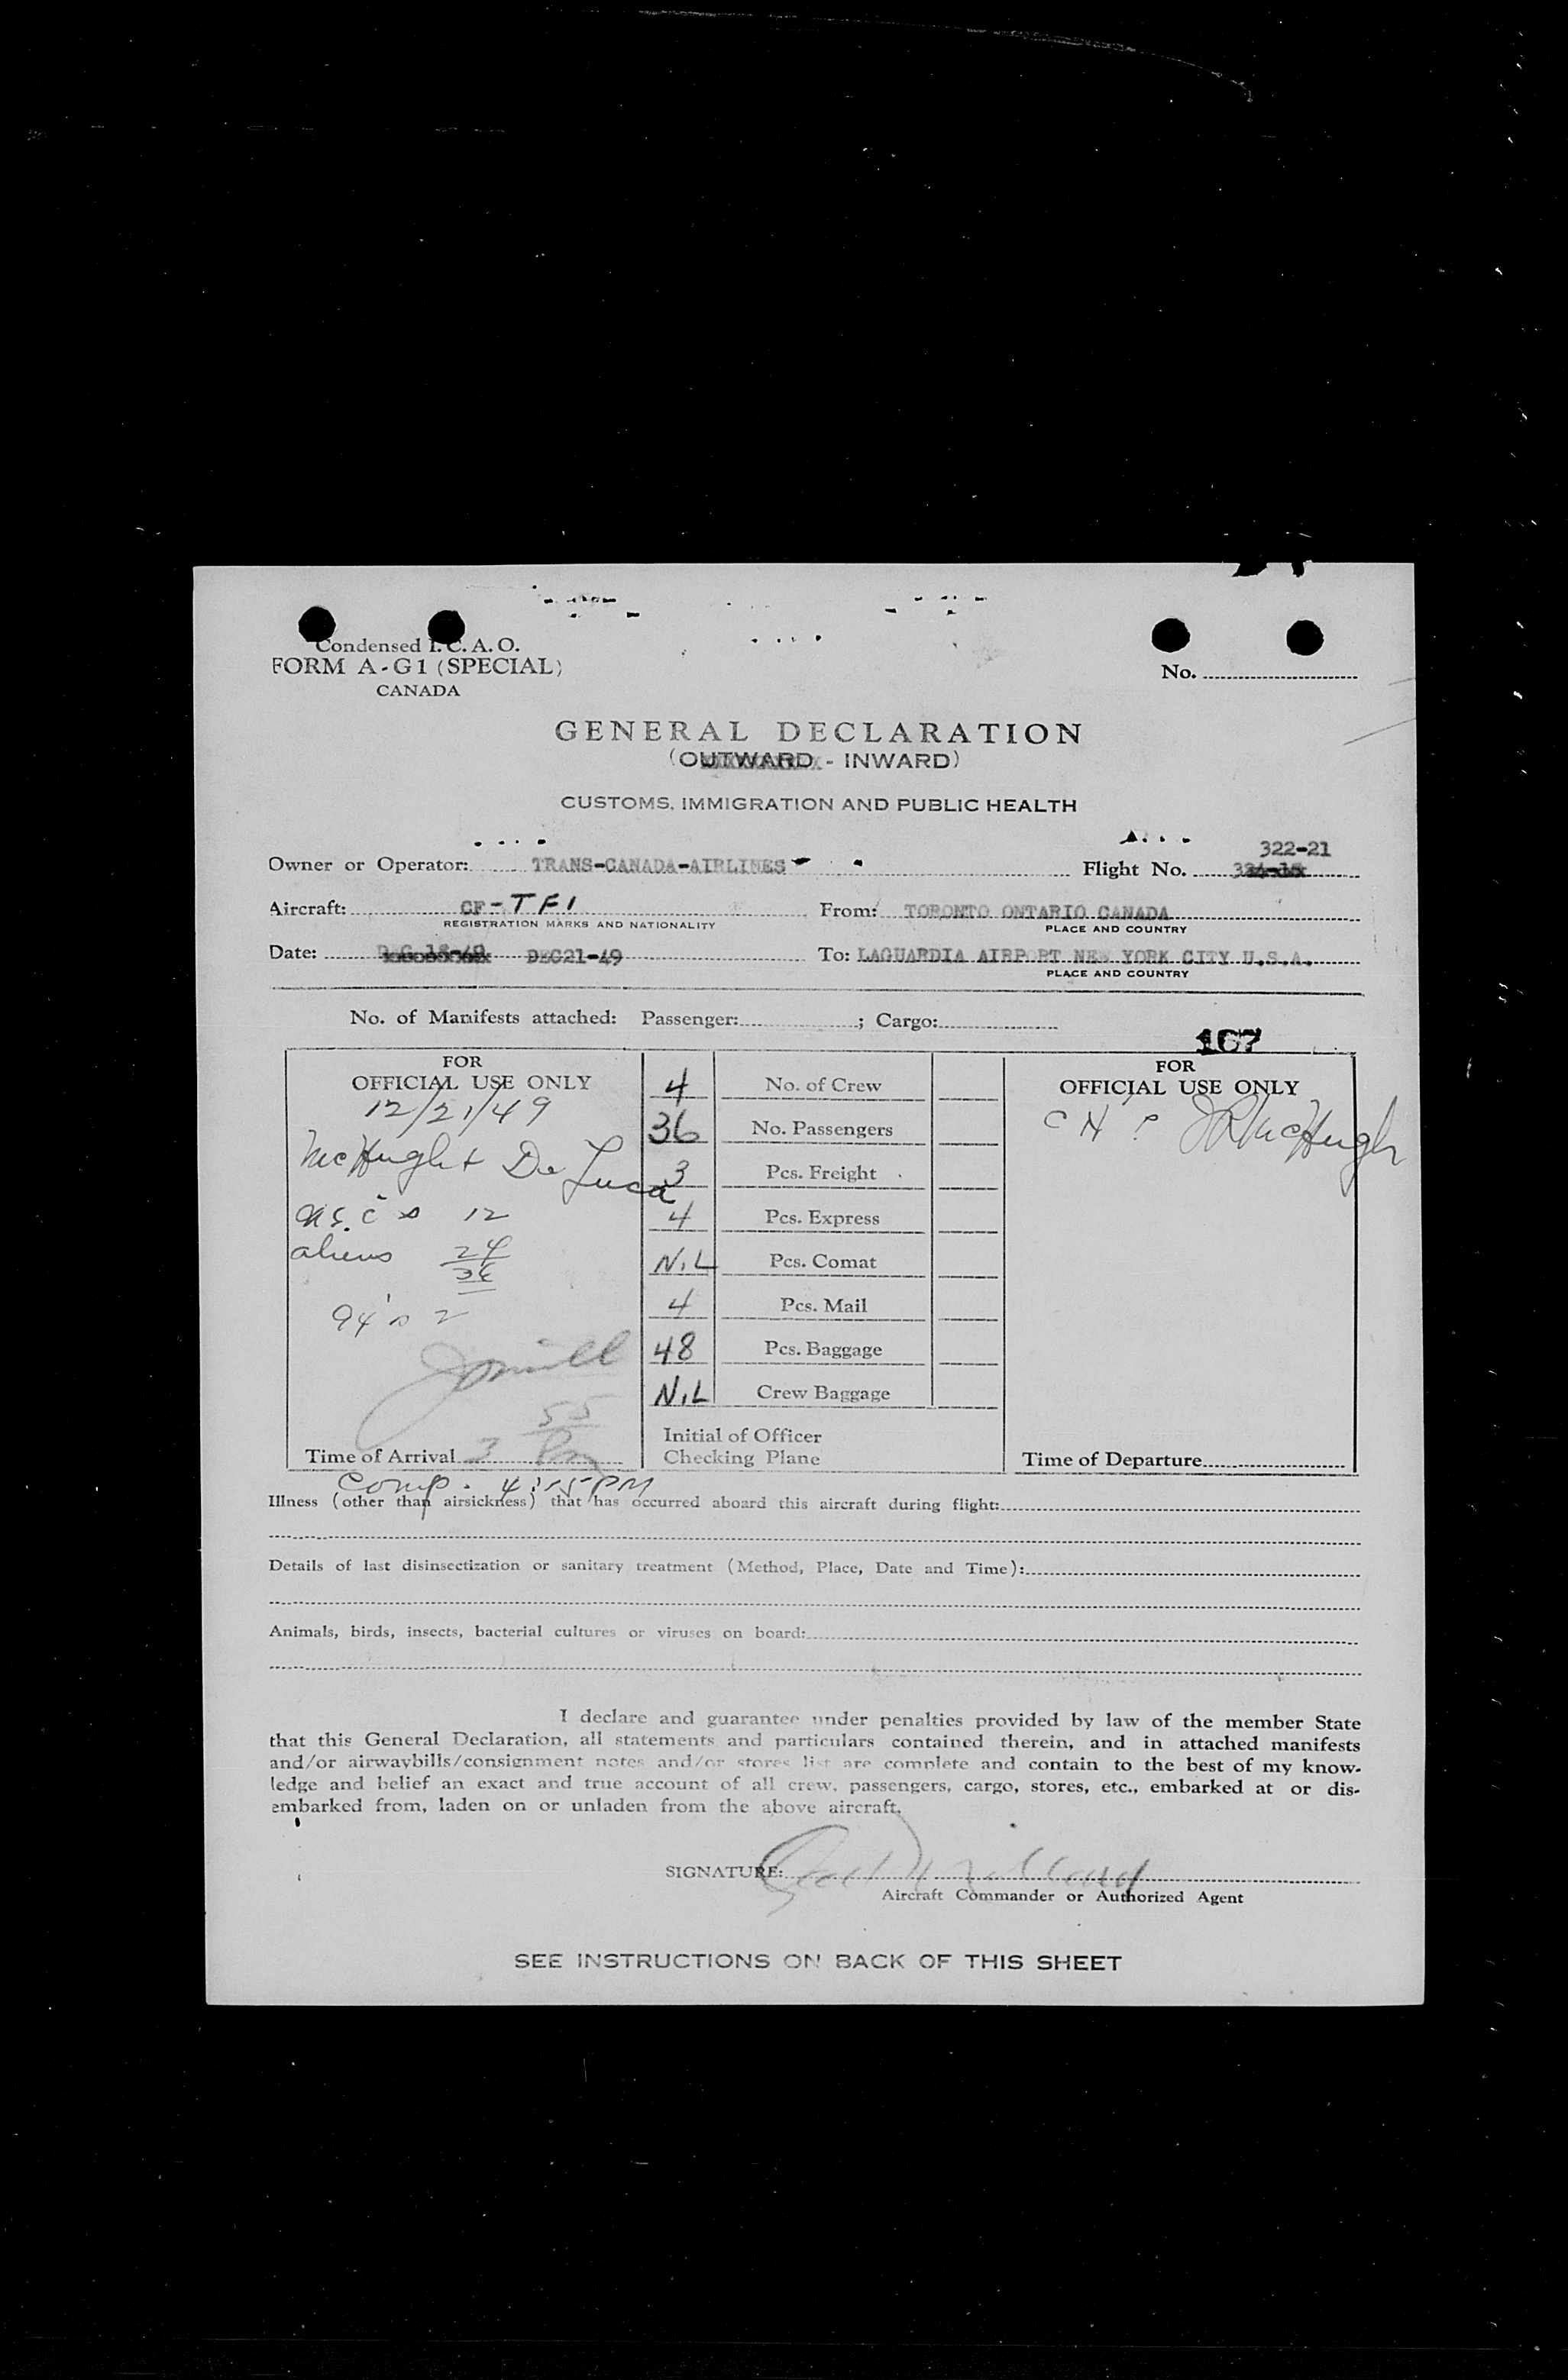 Condensed I. C. A. O.
FORM A-G1 (SPECIAL)
CANADA
No.
GENERAL DECLARATION
(OUTWARD - INWARD)
CUSTOMS, IMMIGRATION AND PUBLIC HEALTH
322-21
Owner or Operator: TRANS-CANADA-AIRLINES Flight No.
Aircraft: CF-TFI From: TORONTO ONTARIO CANADA
REGISTRATION MARKS AND NATIONALITY PLACE AND COUNTRY
Date: DEC 18-49 DEC21-49 To: LAGUARDIA AIRPORT NEW YORK CITY U.S.A.
PLACE AND COUNTRY
No. of Manifests attached: Passenger: ; Cargo:
167
FOR
OFFICIAL USE ONLY
12/21/49
McHugh + De Luca
12
aliens 24
36
94's 2
55
Time of Arrival 3 Pm
Comp. 4:15 PM
4 No. of Crew
36 No. Passengers
3 Pcs. Freight
4 Pcs. Express
NIL Pcs. Comat
4 Pcs. Mail
48 Pcs. Baggage
NIL Crew Baggage
Initial of Officer
Checking Plane
FOR
OFFICIAL USE ONLY
McHugh
Time of Departure
Illness (other than airsickness) that has occurred aboard this aircraft during flight:
Details of last disinsectization or sanitary treatment (Method, Place, Date and Time):
Animals, birds, insects, bacterial cultures or viruses on board:
I declare and guarantee under penalties provided by law of the member State
that this General Declaration, all statements and particulars contained therein, and in attached manifests
and/or airwaybills/consignment notes and/or stores list are complete and contain to the best of my know-
ledge and belief an exact and true account of all crew, passengers, cargo, stores, etc., embarked at or dis-
embarked from, laden on or unladen from the above aircraft.
SIGNATURE:
Aircraft Commander or Authorized Agent
SEE INSTRUCTIONS ON BACK OF THIS SHEET